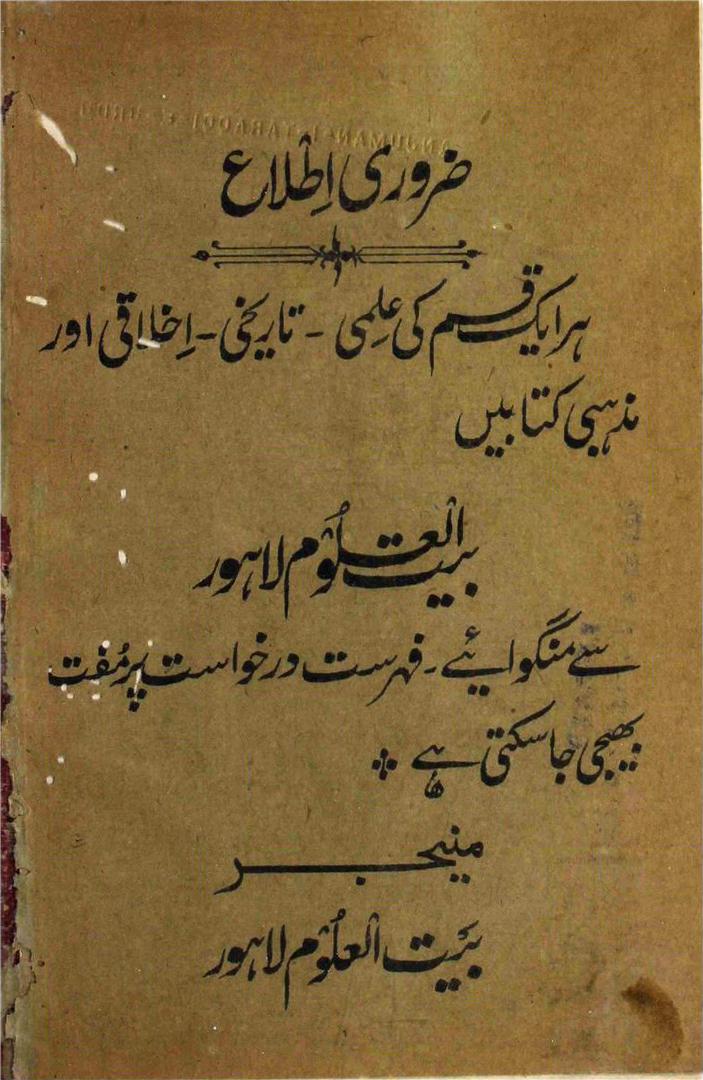 ضروری اطلاع
ہر ایک قسم کی علمی - تاریخی - اخلاقی اور
مذہبی کتابیں
بیت العلوم لاہور
سے منگوائیے - فہرست درخواست پر مفت
بھیجی جا سکتی ہے
منیجر
بیت العلوم لاہور